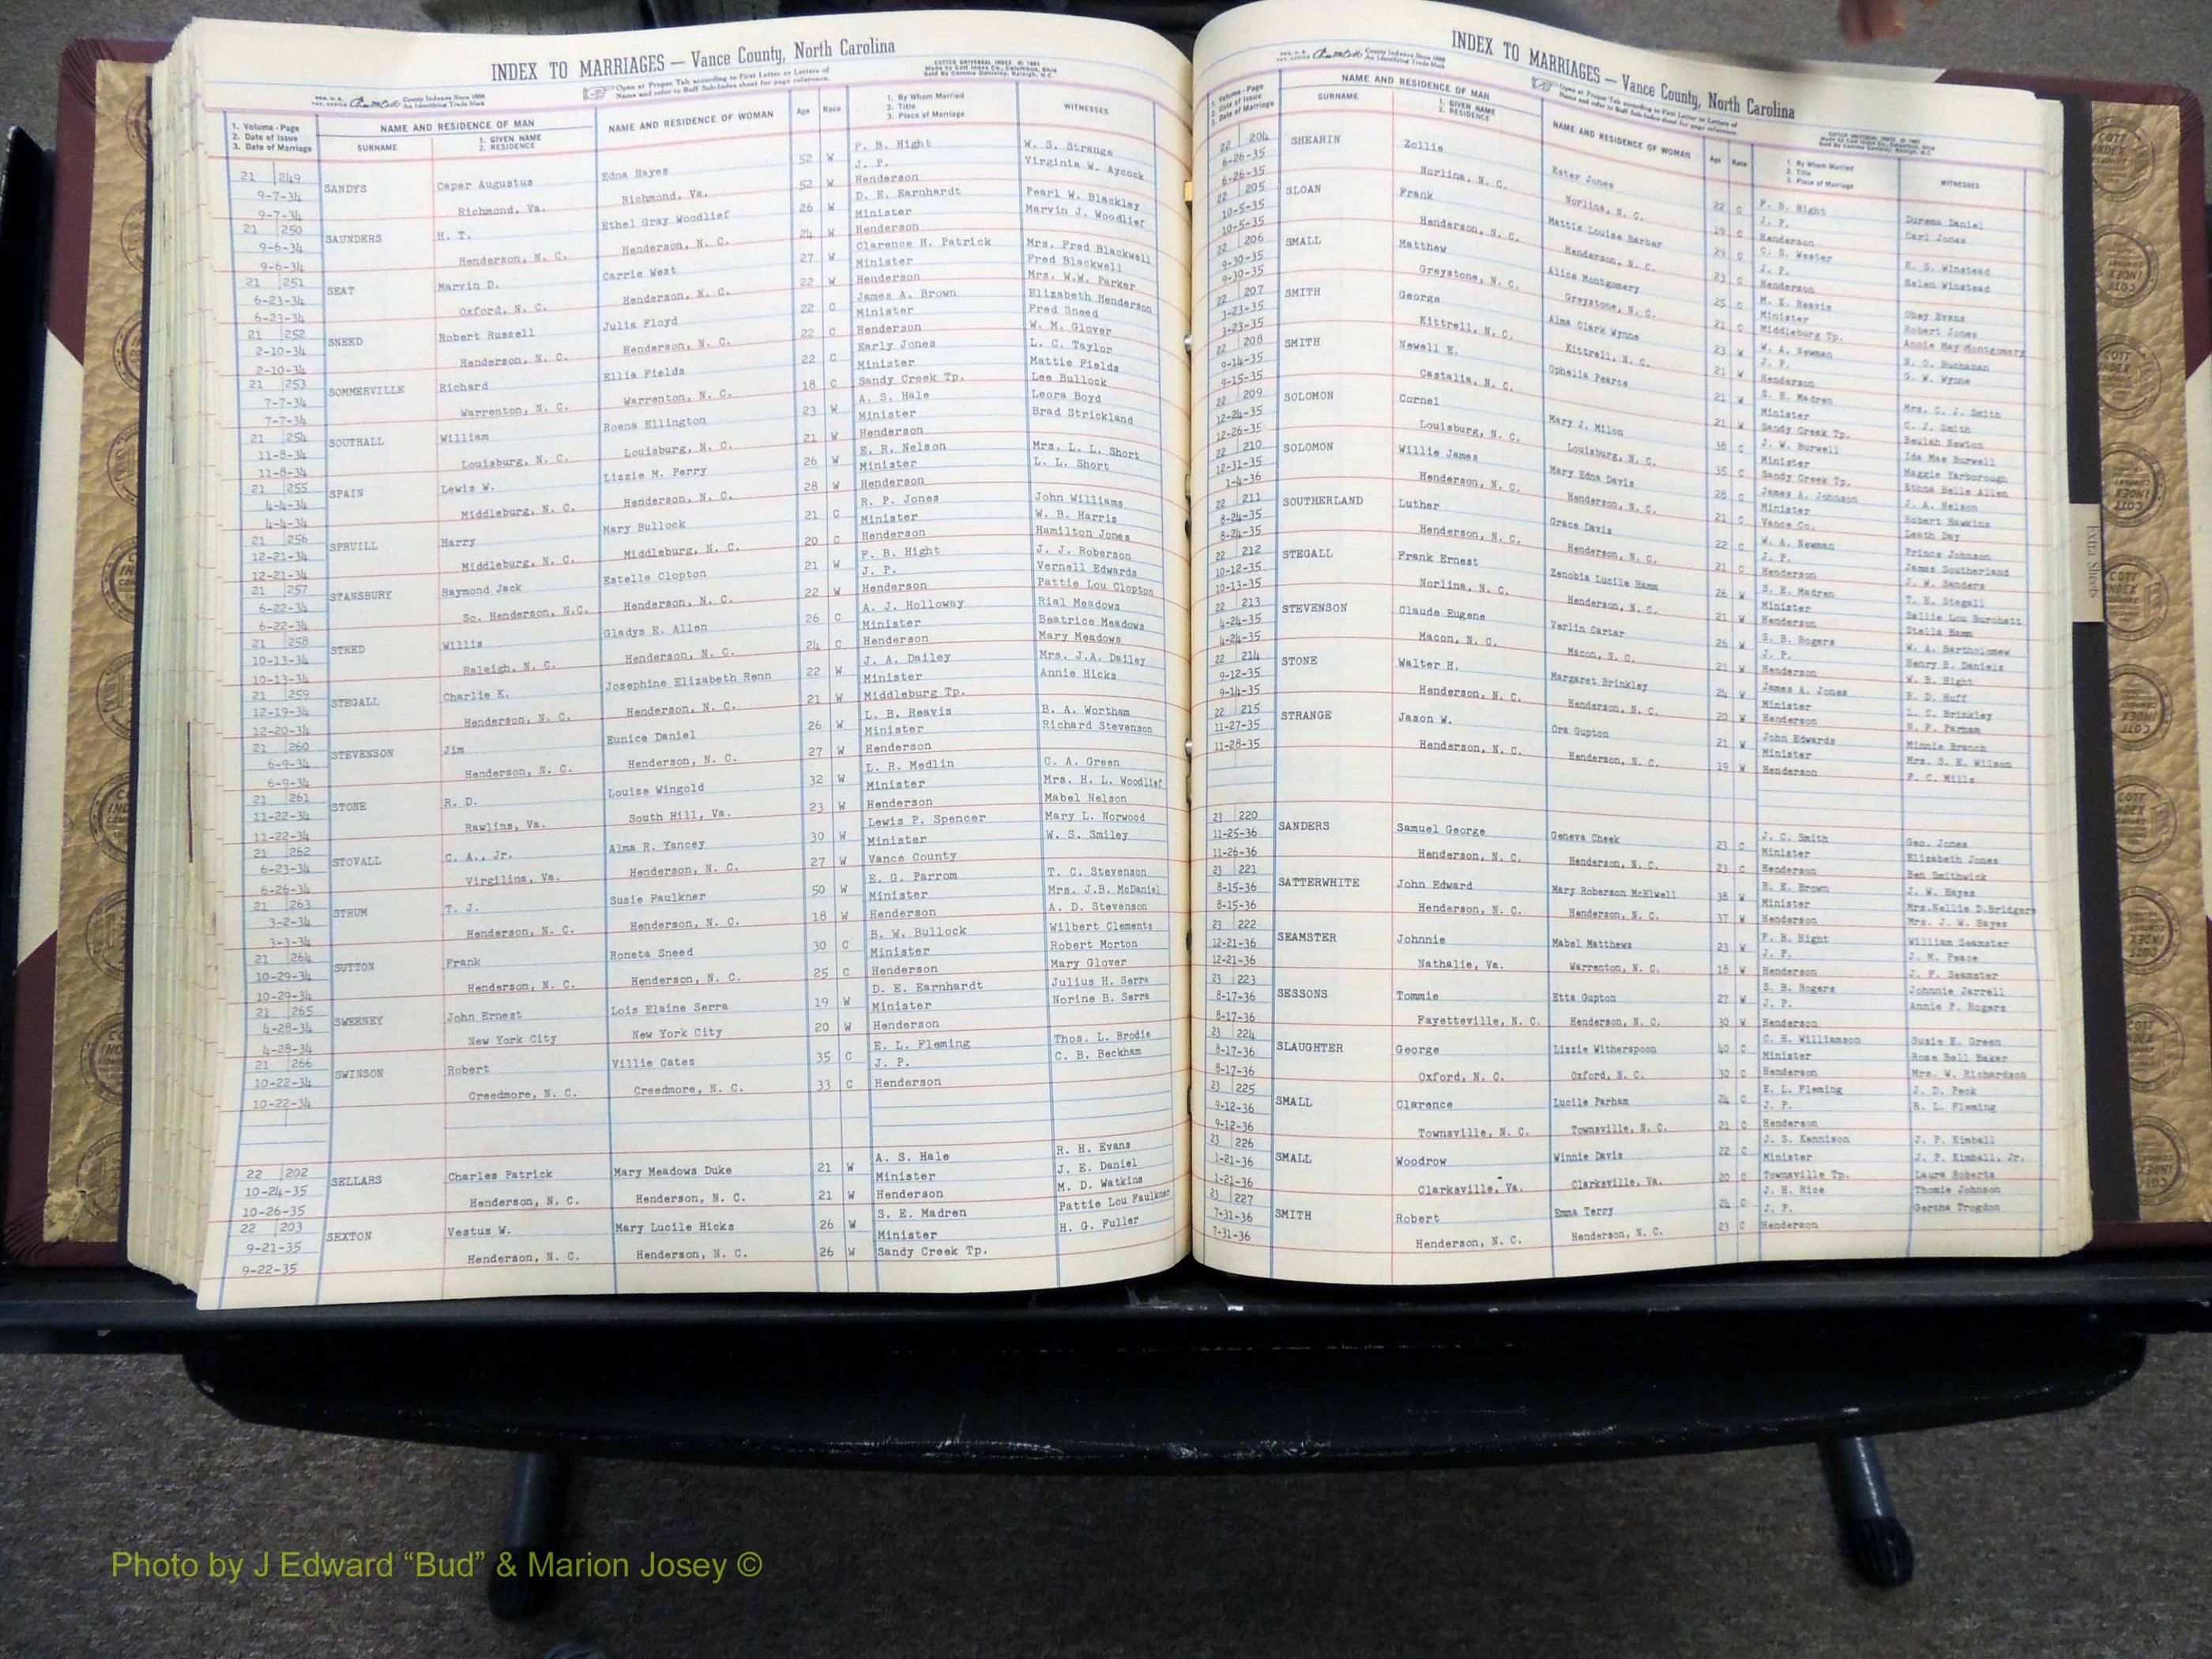 INDEX TO MARRIAGES — Vance County, North Carolina
Open at Proper Tab according to First Letter or Letters of
Name and refer to Buff Sub-Index sheet for page reference.
County Indexes Since 1888
An Identifying Trade Mark
1. Volume - Page
2. Date of Issue
3. Date of Marriage
NAME AND RESIDENCE OF MAN
SURNAME
1. GIVEN NAME
2. RESIDENCE
NAME AND RESIDENCE OF WOMAN
Age Race
1. By Whom Married
2. Title
3. Place of Marriage
WITNESSES
21 249 SANDYS Caper Augustus Edna Hayes 52 W F. B. Hight W. S. Strange
9-7-34 Richmond, Va. Richmond, Va. 52 W J. P. Virginia W. Aycock
9-7-34 Henderson
21 250 SAUNDERS H. T. Ethel Gray Woodlief 26 W D. E. Earnhardt Pearl W. Blackley
9-6-34 Henderson, N. C. Henderson, N. C. 24 W Minister Marvin J. Woodlief
9-6-34 Henderson
21 251 SEAT Marvin D. Carrie West 27 W Clarence H. Patrick Mrs. Fred Blackwell
6-23-34 Oxford, N. C. Henderson, N. C. 22 W Minister Fred Blackwell
6-23-34 Henderson Mrs. W.W. Parker
21 252 SNEED Robert Russell Julia Floyd 22 C James A. Brown Elizabeth Henderson
2-10-34 Henderson, N. C. Henderson, N. C. 22 C Minister Fred Sneed
2-10-34 Henderson W. M. Glover
21 253 SOMMERVILLE Richard Ellia Fields 22 C Early Jones L. C. Taylor
7-7-34 Warrenton, N. C. Warrenton, N. C. 18 C Minister Mattie Fields
7-7-34 Sandy Creek Tp. Lee Bullock
21 254 SOUTHALL William Roena Ellington 23 W A. S. Hale Leora Boyd
11-8-34 Louisburg, N. C. Louisburg, N. C. 21 W Minister Brad Strickland
11-8-34 Henderson
21 255 SPAIN Lewis W. Lizzie M. Perry 26 W E. R. Nelson Mrs. L. L. Short
4-4-34 Middleburg, N. C. Henderson, N. C. 28 W Minister L. L. Short
4-4-34 Henderson
21 256 SPRUILL Harry Mary Bullock 21 C R. P. Jones John Williams
12-21-34 Middleburg, N. C. Middleburg, N. C. 20 C Minister W. B. Harris
12-21-34 Henderson Hamilton Jones
21 257 STANSBURY Raymond Jack Estelle Clopton 21 W F. B. Hight J. J. Roberson
6-22-34 So. Henderson, N.C. Henderson, N. C. 22 W J. P. Vernell Edwards
6-22-34 Henderson Pattie Lou Clopton
21 258 STEED Willis Gladys E. Allen 26 C A. J. Holloway Rial Meadows
10-13-34 Raleigh, N. C. Henderson, N. C. 24 C Minister Beatrice Meadows
10-13-34 Henderson Mary Meadows
21 259 STEGALL Charlie K. Josephine Elizabeth Renn 22 W J. A. Dailey Mrs. J.A. Dailey
12-19-34 Henderson, N. C. Henderson, N. C. 21 W Minister Annie Hicks
12-20-34 Middleburg Tp.
21 260 STEVENSON Jim Eunice Daniel 26 W L. B. Reavis B. A. Wortham
6-9-34 Henderson, N. C. Henderson, N. C. 27 W Minister Richard Stevenson
6-9-34 Henderson
21 261 STONE R. D. Louise Wingold 32 W L. R. Medlin C. A. Green
11-22-34 Rawlins, Va. South Hill, Va. 23 W Minister Mrs. H. L. Woodlief
11-22-34 Henderson Mabel Nelson
21 262 STOVALL C. A., Jr. Alma R. Yancey 30 W Lewis P. Spencer Mary L. Norwood
6-23-34 Virgilina, Va. Henderson, N. C. 27 W Minister W. S. Smiley
6-26-34 Vance County
21 263 STRUM T. J. Susie Faulkner 50 W E. G. Parrom T. C. Stevenson
3-2-34 Henderson, N. C. Henderson, N. C. 18 W Minister Mrs. J.B. McDaniel
3-3-34 Henderson A. D. Stevenson
21 264 SUTTON Frank Roneta Sneed 30 C B. W. Bullock Wilbert Clements
10-29-34 Henderson, N. C. Henderson, N. C. 25 C Minister Robert Morton
10-29-34 Henderson Mary Glover
21 265 SWEENEY John Ernest Lois Elaine Serra 19 W D. E. Earnhardt Julius H. Serra
4-28-34 New York City New York City 20 W Minister Norine B. Serra
4-28-34 Henderson
21 266 SWINSON Robert Villie Cates 35 C E. L. Fleming Thos. L. Brodie
10-22-34 Creedmore, N. C. Creedmore, N. C. 33 C J. P. C. B. Beckham
10-22-34 Henderson
22 202 SELLARS Charles Patrick Mary Meadows Duke 21 W A. S. Hale R. H. Evans
10-24-35 Henderson, N. C. Henderson, N. C. 21 W Minister J. E. Daniel
10-26-35 Henderson M. D. Watkins
22 203 SEXTON Vestus W. Mary Lucile Hicks 26 W S. E. Madren Pattie Lou Faulkner
9-21-35 Henderson, N. C. Henderson, N. C. 26 W Minister H. G. Fuller
9-22-35 Sandy Creek Tp.
INDEX TO MARRIAGES — Vance County, North Carolina
Open at Proper Tab according to First Letter or Letters of
Name and refer to Buff Sub-Index sheet for page reference.
County Indexes Since 1888
An Identifying Trade Mark
1. Volume - Page
2. Date of Issue
3. Date of Marriage
NAME AND RESIDENCE OF MAN
SURNAME
1. GIVEN NAME
2. RESIDENCE
NAME AND RESIDENCE OF WOMAN
Age Race
1. By Whom Married
2. Title
3. Place of Marriage
WITNESSES
22 204 SHEARIN Zollie Ester Jones 22 C F. B. Hight Durema Daniel
6-26-35 Norlina, N. C. Norlina, N. C. 19 C J. P. Carl Jones
6-26-35 Henderson
22 205 SLOAN Frank Mattie Louise Barber 29 C C. S. Wester E. S. Winstead
10-5-35 Henderson, N. C. Henderson, N. C. 23 C J. P. Helen Winstead
10-5-35 Henderson
22 206 SMALL Matthew Alice Montgomery 25 C M. Z. Reavis Obey Evans
9-30-35 Greystone, N. C. Greystone, N. C. 21 C Minister Robert Jones
9-30-35 Middleburg Tp. Annie May Montgomery
22 207 SMITH George Alma Clark Wynne 23 W W. A. Newman N. O. Buchanan
3-23-35 Kittrell, N. C. Kittrell, N. C. 21 W J. P. G. W. Wynne
3-23-35 Henderson
22 208 SMITH Newell E. Ophelia Pearce 21 W S. E. Madren Mrs. C. J. Smith
9-14-35 Castalia, N. C. 21 W Minister C. J. Smith
9-15-35 Sandy Creek Tp. Beulah Newton
22 209 SOLOMON Cornel Mary J. Milon 38 C J. W. Burwell Ida Mae Burwell
12-24-35 Louisburg, N. C. Louisburg, N. C. 35 C Minister Maggie Yarborough
12-26-35 Sandy Creek Tp. Ethna Belle Allen
22 210 SOLOMON Willie James Mary Edna Davis 28 C James A. Johnson J. A. Nelson
12-31-35 Henderson, N. C. Henderson, N. C. 21 C Minister Robert Hawkins
1-4-36 Vance Co. Leath Day
22 211 SOUTHERLAND Luther Grace Davis 22 C W. A. Newman Prince Johnson
8-24-35 Henderson, N. C. Henderson, N. C. 21 C J. P. James Southerland
8-24-35 Henderson J. W. Sanders
22 212 STEGALL Frank Ernest Zenobia Lucile Hamm 26 W S. E. Madren T. E. Stegall
10-12-35 Norlina, N. C. Henderson, N. C. 21 W Minister Sallie Lou Burchett
10-13-35 Henderson Stella Hamm
22 213 STEVENSON Claude Eugene Verlin Carter 26 W S. B. Rogers W. A. Bartholomew
4-24-35 Macon, N. C. Macon, N. C. 21 W J. P. Henry B. Daniels
4-24-35 Henderson W. B. Hight
22 214 STONE Walter H. Margaret Brinkley 24 W James A. Jones R. D. Huff
9-12-35 Henderson, N. C. Henderson, N. C. 20 W Minister L. C. Brinkley
9-14-35 Henderson N. P. Parham
22 215 STRANGE Jason W. Ora Gupton 21 W John Edwards Minnie Branch
11-27-35 Henderson, N. C. Henderson, N. C. 19 W Minister Mrs. S. E. Wilson
11-28-35 Henderson F. C. Mills
23 220 SANDERS Samuel George Geneva Cheek 23 C J. C. Smith Geo. Jones
11-25-36 Henderson, N. C. Henderson, N. C. 23 C Minister Elizabeth Jones
11-26-36 Henderson Ben Smithwick
23 221 SATTERWHITE John Edward Mary Roberson McElwell 38 W R. E. Brown J. W. Hayes
8-15-36 Henderson, N. C. Henderson, N. C. 37 W Minister Mrs.Nellie D.Bridgers
8-15-36 Henderson Mrs. J. W. Hayes
23 222 SEAMSTER Johnnie Mabel Matthews 23 W F. B. Hight William Seamster
12-21-36 Nathalie, Va. Warrenton, N. C. 18 W J. P. J. M. Peace
12-21-36 Henderson J. F. Seamster
23 223 SESSONS Tommie Etta Gupton 27 W S. B. Rogers Johnnie Jarrell
8-17-36 Fayetteville, N. C. Henderson, N. C. 30 W J. P. Annie F. Rogers
8-17-36 Henderson
23 224 SLAUGHTER George Lizzie Witherspoon 40 C C. H. Williamson Susie E. Green
8-17-36 Oxford, N. C. Oxford, N. C. 30 C Minister Rose Bell Baker
8-17-36 Henderson Mrs. W. Richardson
23 225 SMALL Clarence Lucile Parham 24 C E. L. Fleming J. D. Peck
9-12-36 Townsville, N. C. Townsville, N. C. 21 C J. P. R. L. Fleming
9-12-36 Henderson
23 226 SMALL Woodrow Winnie Davis 22 C J. S. Kennison J. P. Kimball
1-21-36 Clarksville, Va. Clarksville, Va. 20 C Minister J. P. Kimball, Jr.
1-21-36 Townsville Tp. Laura Roberts
23 227 SMITH Robert Emma Terry 24 C J. H. Rice Thomie Johnson
7-31-36 Henderson, N. C. Henderson, N. C. 23 C J. P. Gertha Trogdon
7-31-36 Henderson
Extra Sheets
COTT INDEX COMPANY
Photo by J Edward “Bud” & Marion Josey ©